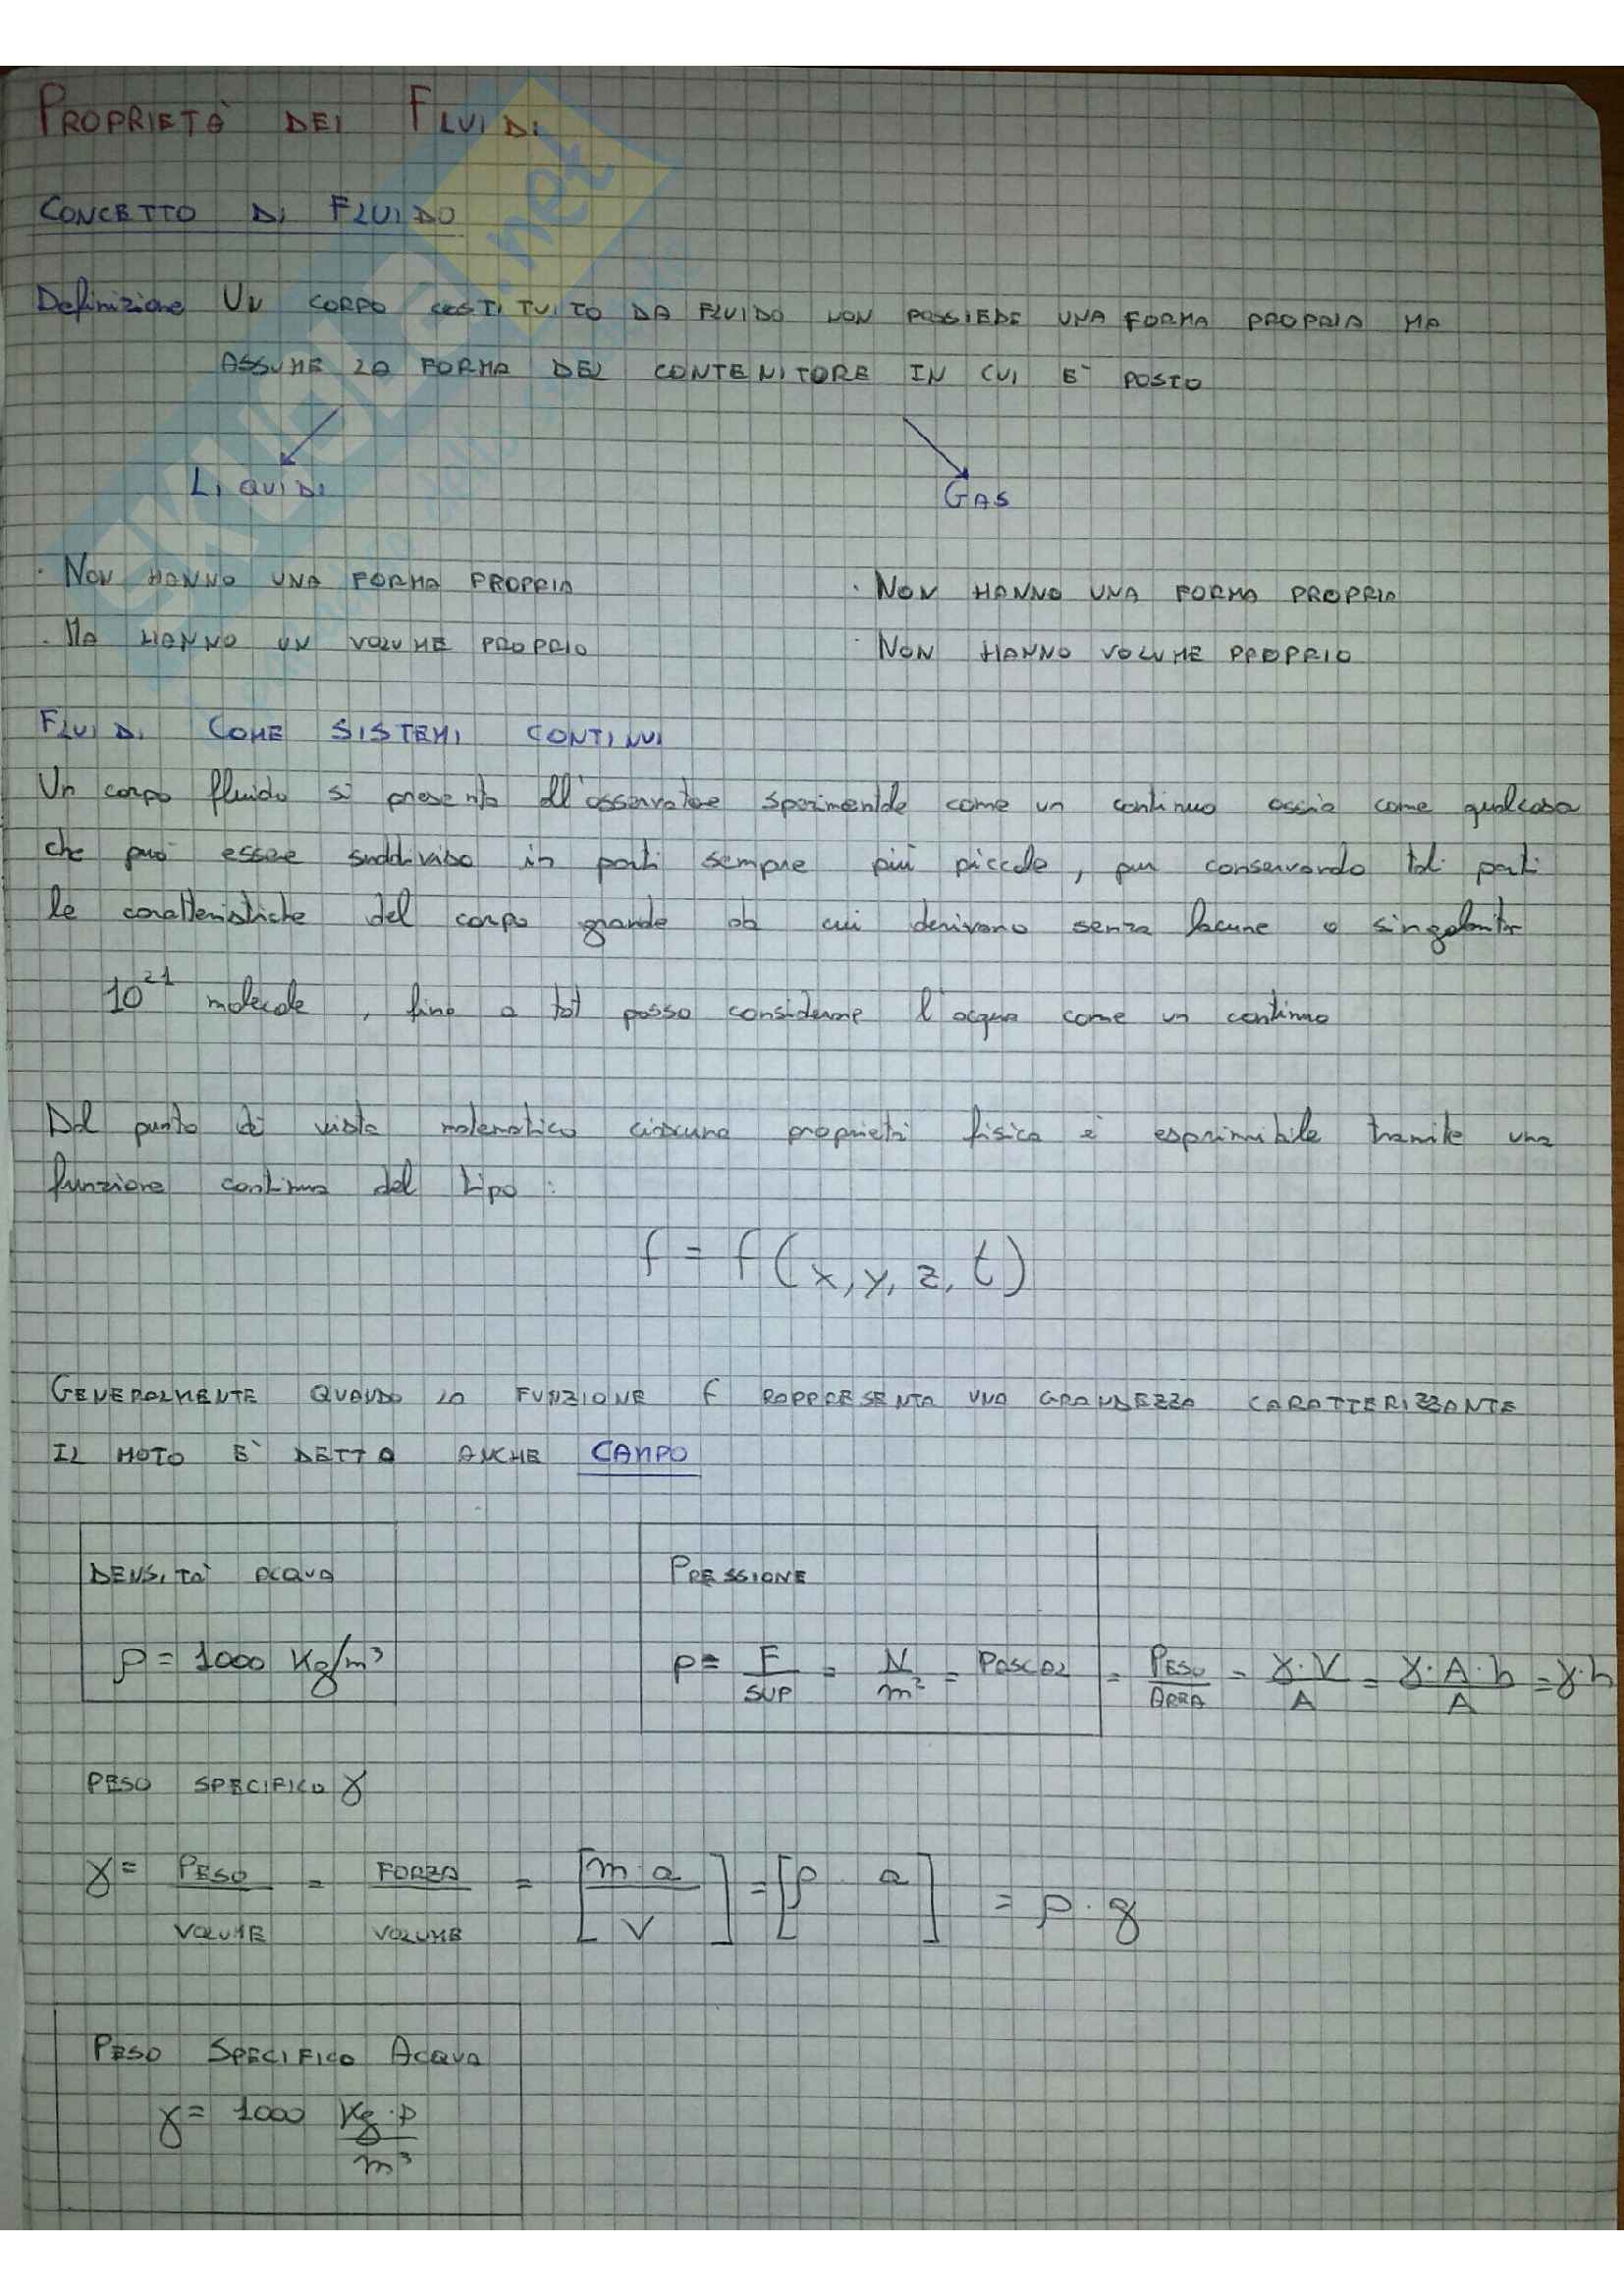 PROPRIETÀ DEI FLUIDI
CONCETTO DI FLUIDO
Definizione UN CORPO COSTITUITO DA FLUIDO NON POSSIEDE UNA FORMA PROPRIA MA
ASSUME LA FORMA DEL CONTENITORE IN CUI E' POSTO
LIQUIDI
GAS
· NON HANNO UNA FORMA PROPRIA
· MA HANNO UN VOLUME PROPRIO
· NON HANNO UNA FORMA PROPRIA
· NON HANNO VOLUME PROPRIO
FLUIDI COME SISTEMI CONTINUI
Un corpo fluido si presenta all'osservatore sperimentale come un continuo ossia come qualcosa
che può essere suddiviso in parti sempre più piccole, pur conservando tali parti
le caratteristiche del corpo grande da cui derivano senza lacune o singolarità
10²¹ molecole, fino a tot posso considerare l'acqua come un continuo
Dal punto di vista matematico ciascuna proprietà fisica è esprimibile tramite una
funzione continua del tipo:
f = f(x, y, z, t)
GENERALMENTE QUANDO LA FUNZIONE f RAPPRESENTA UNA GRANDEZZA CARATTERIZZANTE
IL MOTO E' DETTA ANCHE CAMPO
DENSITA' ACQUA
ρ = 1000 Kg/m³
PRESSIONE
p = F/SUP = N/m² = PASCAL = PESO/AREA = γ·V/A = γ·A·h/A = γ·h
PESO SPECIFICO γ
γ = PESO/VOLUME = FORZA/VOLUME = [m·a/V] = [ρ·a] = ρ·g
PESO SPECIFICO ACQUA
γ = 1000 Kg·p/m³
SKUOLA.net